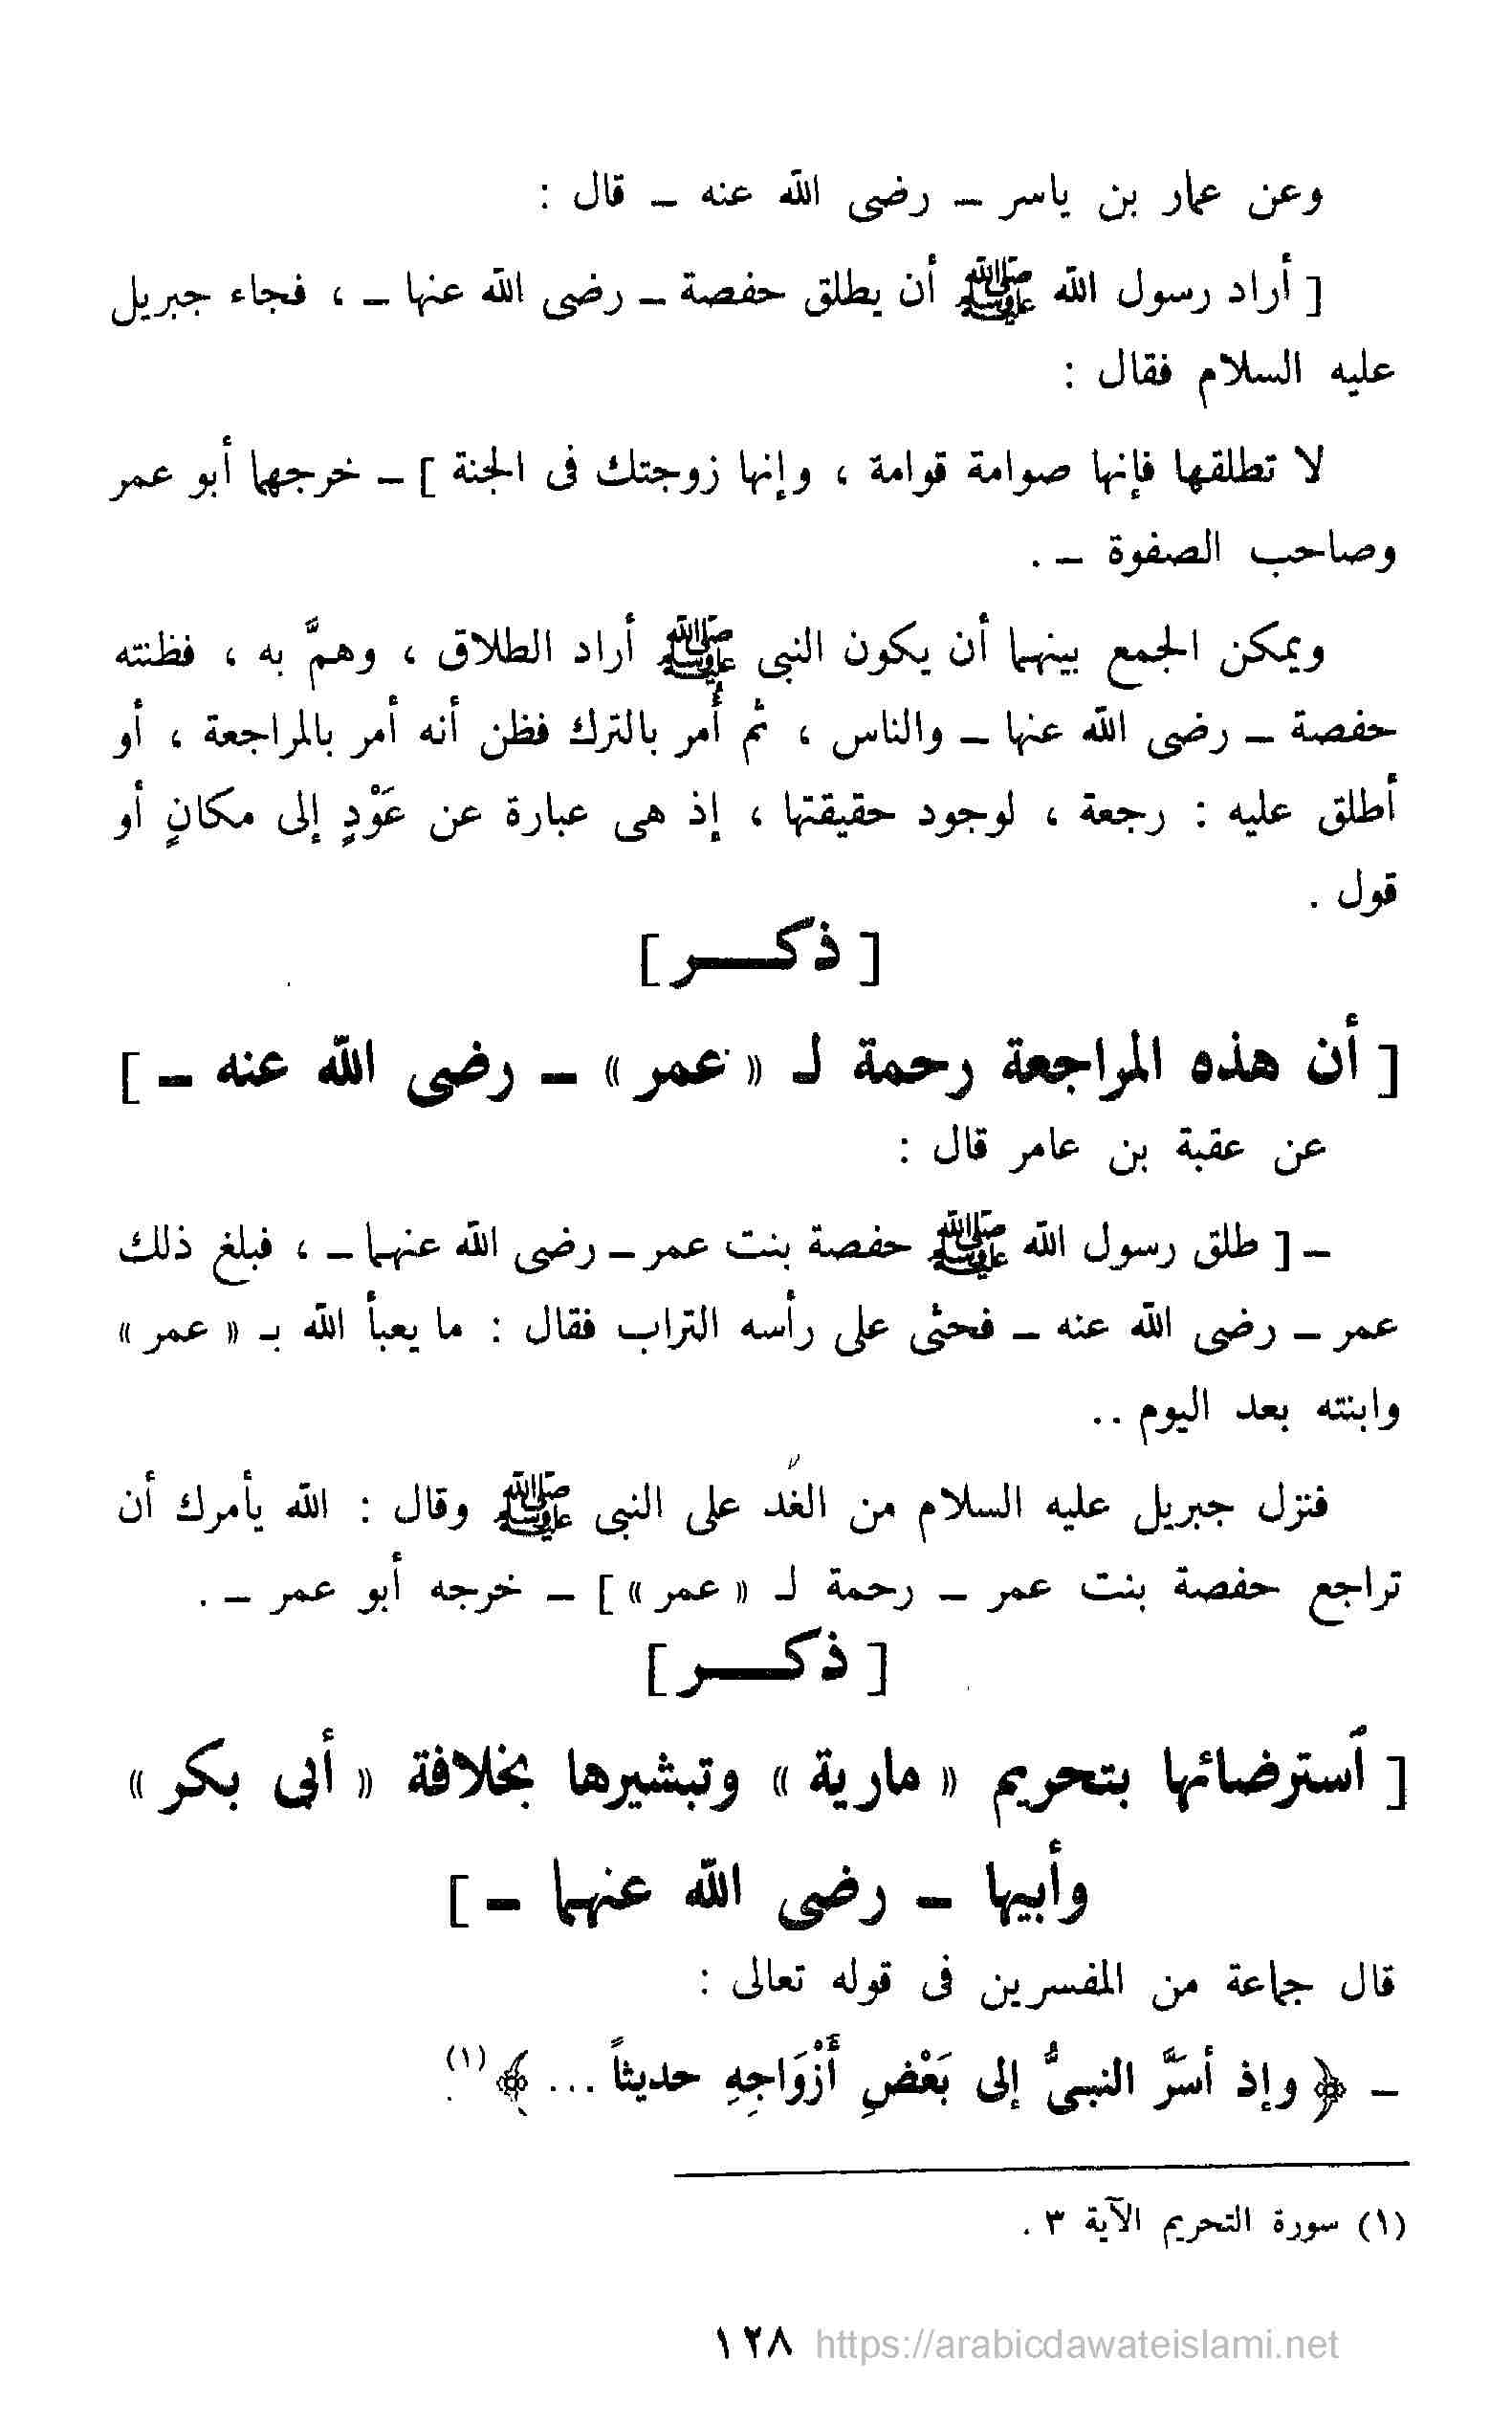 وعن عمار بن ياسر – رضى الله عنه – قال :
[ أراد رسول الله ﷺ أن يطلق حفصة – رضى الله عنها – ، فجاء جبريل
عليه السلام فقال :
لا تطلقها فإنها صوامة قوامة ، وإنها زوجتك فى الجنة ] – خرجهما أبو عمر
وصاحب الصفوة – .
ويمكن الجمع بينهما أن يكون النبى ﷺ أراد الطلاق ، وهمَّ به ، فظنته
حفصة – رضى الله عنها – والناس ، ثم أُمر بالترك فظن أنه أمر بالمراجعة ، أو
أطلق عليه : رجعة ، لوجود حقيقتها ، إذ هى عبارة عن عَوْدٍ إلى مكانٍ أو
قول .
[ ذكــــر ]
[ أن هذه المراجعة رحمة لـ « عمر » – رضى الله عنه – ]
عن عقبة بن عامر قال :
– [ طلق رسول الله ﷺ حفصة بنت عمر – رضى الله عنهما – ، فبلغ ذلك
عمر – رضى الله عنه – فحثى على رأسه التراب فقال : ما يعبأ الله بـ « عمر »
وابنته بعد اليوم ..
فنزل جبريل عليه السلام من الغد على النبى ﷺ وقال : الله يأمرك أن
تراجع حفصة بنت عمر – رحمة لـ « عمر » ] – خرجه أبو عمر – .
[ ذكــــر ]
[ آسترضائها بتحريم « مارية » وتبشيرها بخلافة « أبى بكر »
وأبيها – رضى الله عنهما – ]
قال جماعة من المفسرين فى قوله تعالى :
– ﴿ وإذ أسَرَّ النبىُّ إلى بَعْضِ أَزْوَاجِهِ حديثاً ... ﴾ (١)
(١) سورة التحريم الآية ٣ .
١٢٨ https://arabicdawateislami.net